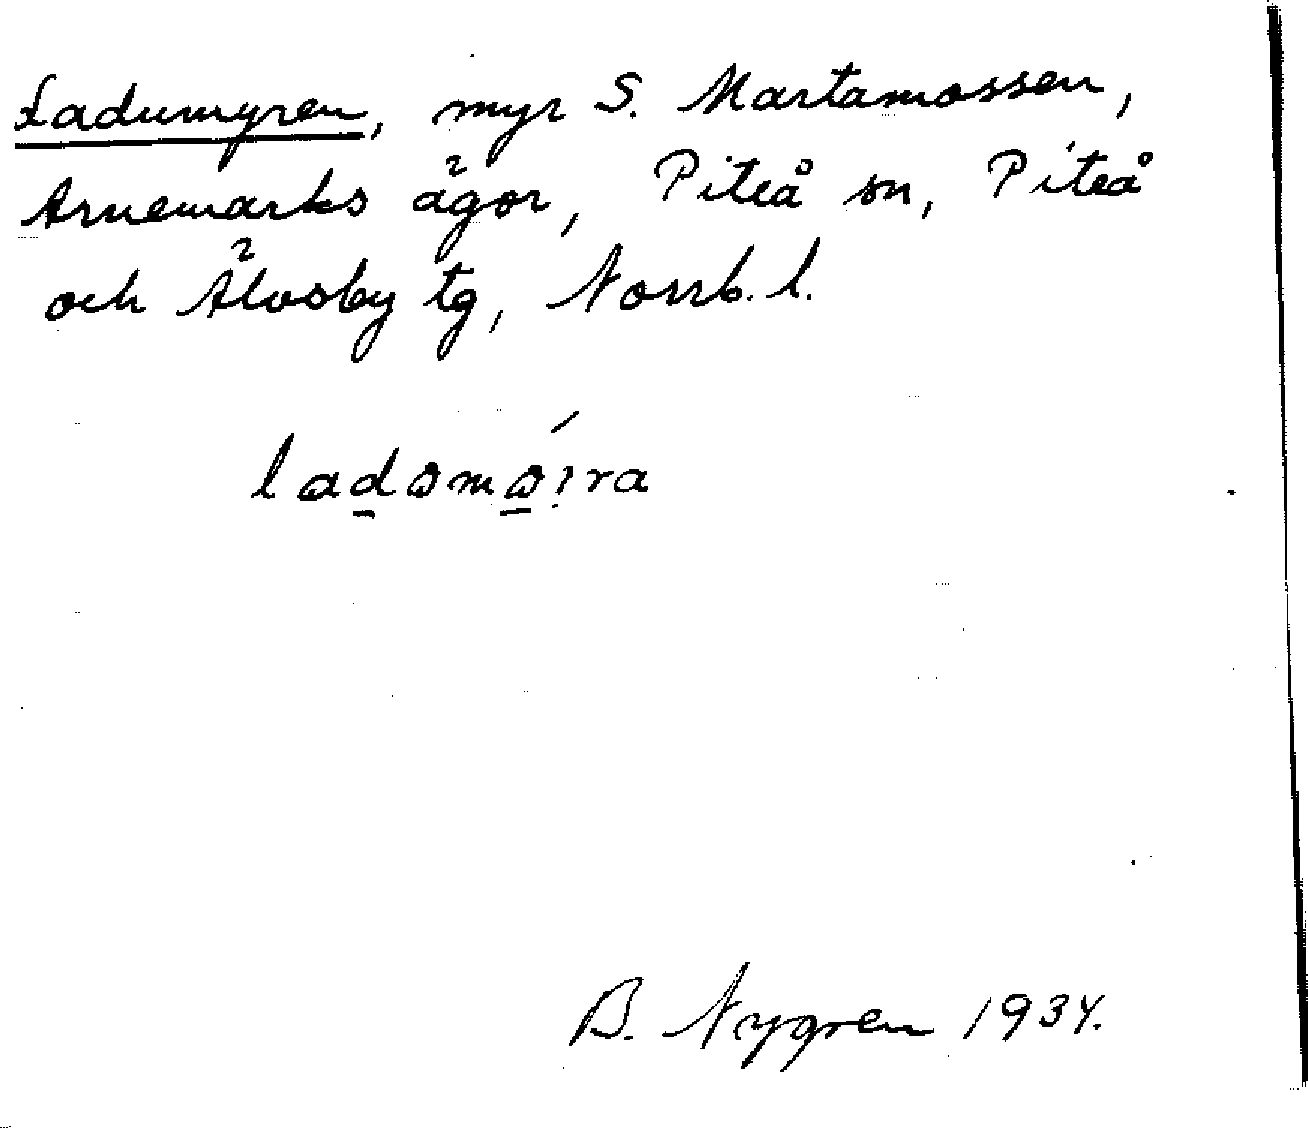 Ladumyren, myr S. Martamossen,
Arnemarks ägor, Piteå sn, Piteå
och Älvsby tg, Norrb. l.
B. Nygren 1934.